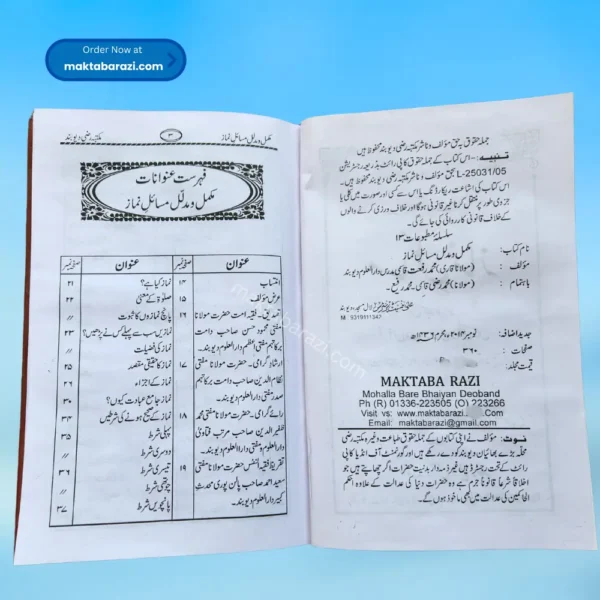 Order Now at
maktabarazi.com
جملہ حقوق بحق مؤلف و ناشر مکتبہ رضی دیوبند محفوظ ہیں
تنبیہ :- اس کتاب کے جملہ حقوق کاپی رائٹ بذریعہ رجسٹریشن
L-25031/05 بحق مؤلف و ناشر مکتبہ رضی دیوبند محفوظ ہیں۔
اس کتاب کی اشاعت ریکارڈنگ یا اس سے کسی اور صورت میں کلی یا
جزوی طور پر منتقل کرنا غیر قانونی ہوگا اور خلاف ورزی کرنے والوں
کے خلاف قانونی کارروائی کی جائے گی۔
سلسلۂ مطبوعات ۱۳
نام کتاب : مکمل و مدلل مسائل نماز
مؤلف : (مولانا قاری) محمد رفعت قاسمی مدرس دارالعلوم دیوبند
باہتمام : (مولانا) محمد رضی قاسمی۔ محمد رفیع۔
M 9319111347
جدید اضافہ : نومبر ۲۰۱۴ء محرم ۱۴۳۶ھ
صفحات : ۳۶۰
قیمت مجلد :
MAKTABA RAZI
Mohalla Bare Bhaiyan Deoband
Ph (R) 01336-223505 (O) 223266
Visit vs: www.maktabarazi.
Email: maktabarazi@gmail.com
نوٹ: مؤلف نے اپنی کتابوں کے جملہ حقوق طباعت وغیرہ مکتبہ رضی
محلہ بڑے بھائیان دیوبند کو دے رکھے ہیں اور گورنمنٹ آف انڈیا کاپی
رائٹ کے تحت رجسٹرڈ ہیں غیر ذمہ دار بد نیت حضرات اگر چھاپتے ہیں جو
اخلاقاً شرعاً قانوناً جرم ہے وہ حضرات دنیا کی عدالت کے علاوہ احکم
الحاکمین کی عدالت میں بھی ماخوذ ہوں گے۔
مکمل و مدلل مسائل نماز ۳ مکتبہ رضی دیوبند
فہرست عنوانات
مکمل و مدلل مسائل نماز
عنوان صفحہ نمبر
انتساب ۱۴
عرض مؤلف ۱۵
تصدیق۔ فقیہ امت حضرت مولانا ۱۶
مفتی محمود حسن صاحب دامت
برکاتہم مفتی اعظم دارالعلوم دیوبند
ارشاد گرامی۔ حضرت مولانا مفتی ۱۷
نظام الدین صاحب دامت برکاتہم
صدر مفتی دارالعلوم دیوبند۔
رائے گرامی۔ حضرت مولانا مفتی محمد ۱۸
ظفیر الدین صاحب مرتب فتاویٰ
دارالعلوم و مفتی دارالعلوم دیوبند۔
تقریظ فقیہ النفس حضرت مولانا مفتی ۱۹
سعید احمد صاحب پالن پوری محدث
کبیر دارالعلوم دیوبند۔
عنوان صفحہ نمبر
نماز کیا ہے؟ ۲۱
صلوٰۃ کے معنی ۲۲
پانچ نمازوں کا ثبوت //
نمازیں سب سے پہلے کس نے پڑھیں؟ ۲۳
نماز کی فضیلت //
نماز کا حقیقی مقصد ۲۵
نماز کے اجزاء ۲۶
نماز جامع عبادت کیوں؟ ۳۰
نماز کے صحیح ہونے کی شرطیں ۳۴
پہلی شرط ۳۵
دوسری شرط //
تیسری شرط ۳۶
چوتھی شرط //
پانچویں شرط ۳۷
maktabarazi.com